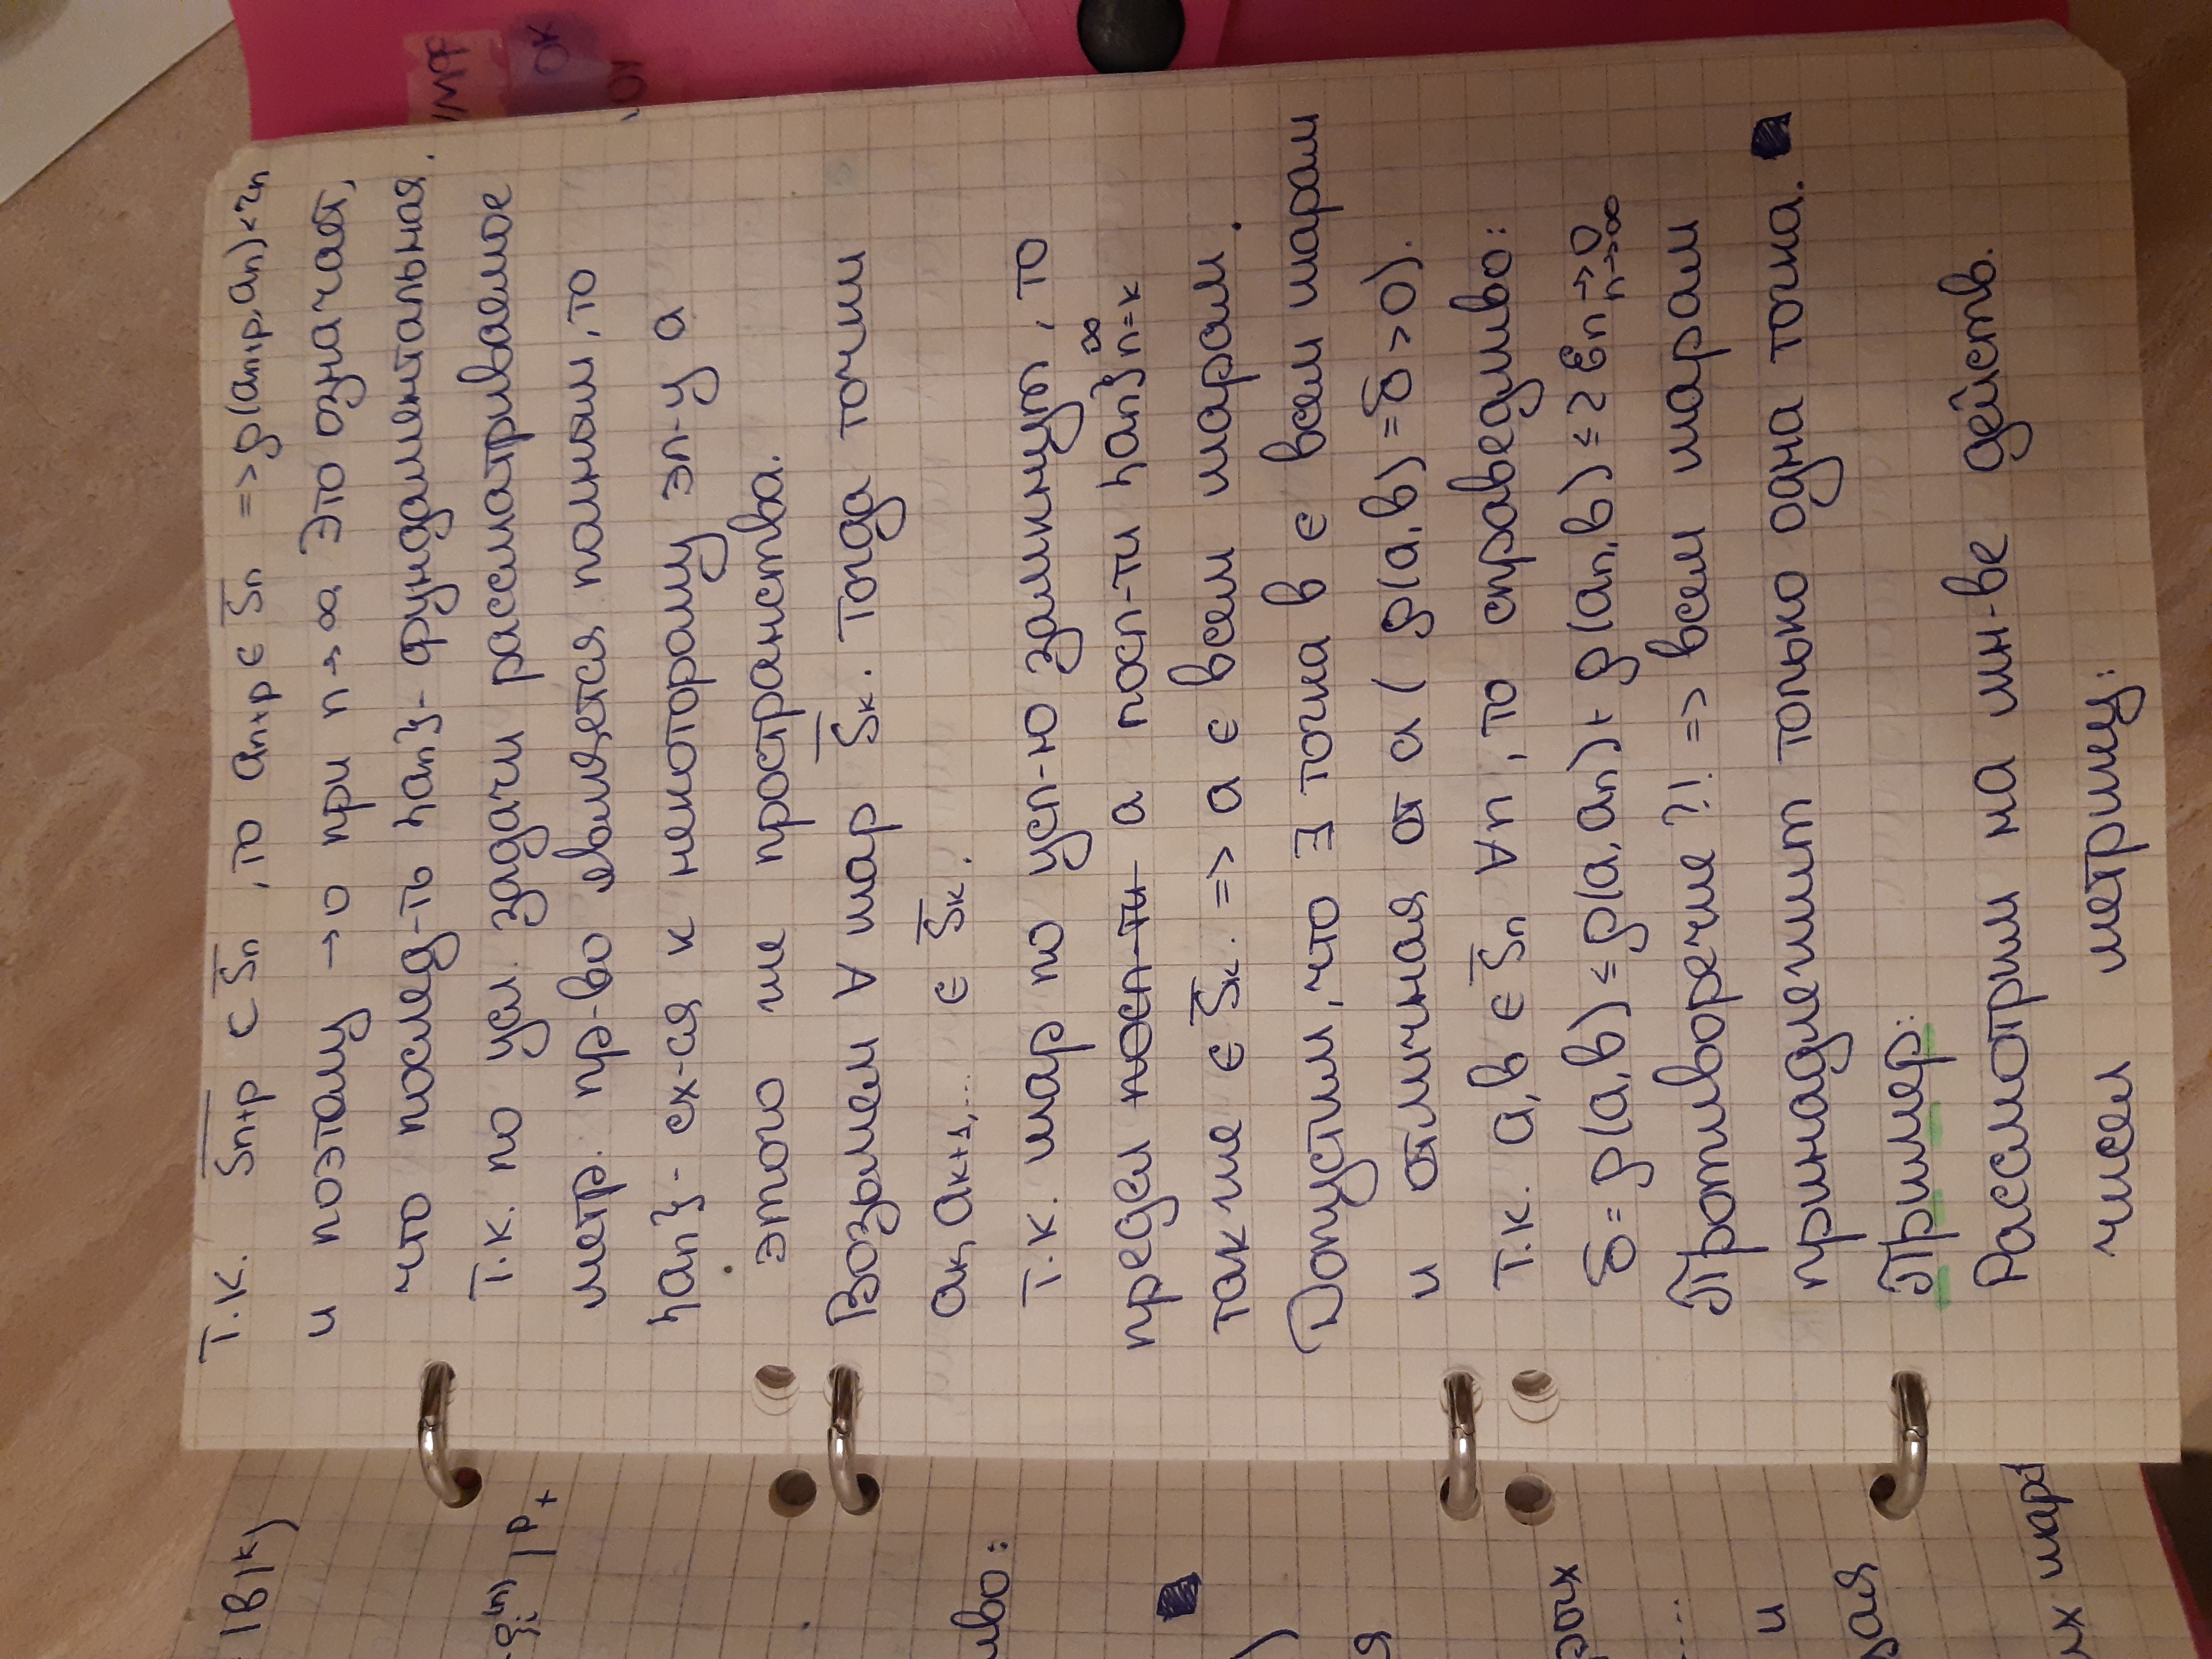 т.к. S̅n+p ⊂ S̅n, то an+p ∈ S̅n => ρ(an+p, an) < rn
и поэтому → 0 при n → ∞. Это означает,
что послед-ть {an} - фундаментальная.
Т.к. по усл. задачи рассматриваемое
метр. пр-во является полным, то
{an} - сх-ся к некоторому эл-у a
этого же пространства.
Возьмем ∀ шар S̅k. Тогда точки
ak, ak+1,... ∈ S̅k.
Т.к. шар по усл-ю замкнут, то
предел посл-ти a посл-ти {an}∞n=k
также ∈ S̅k. => a ∈ всем шарам.
Допустим, что ∃ точка b ∈ всем шарам
и отличная от a ( ρ(a,b) = δ > 0).
Т.к. a,b ∈ S̅n ∀n, то справедливо:
δ = ρ(a,b) ≤ ρ(a,an) + ρ(an,b) ≤ 2 εn → 0 n→∞
Противоречие ?! => всем шарам
принадлежит только одна точка.
Пример:
Рассмотрим на мн-ве действ.
чисел метрику:
|b|k)
(n) | p +
иво:
я
рых
....
и
рая
их шар
OK